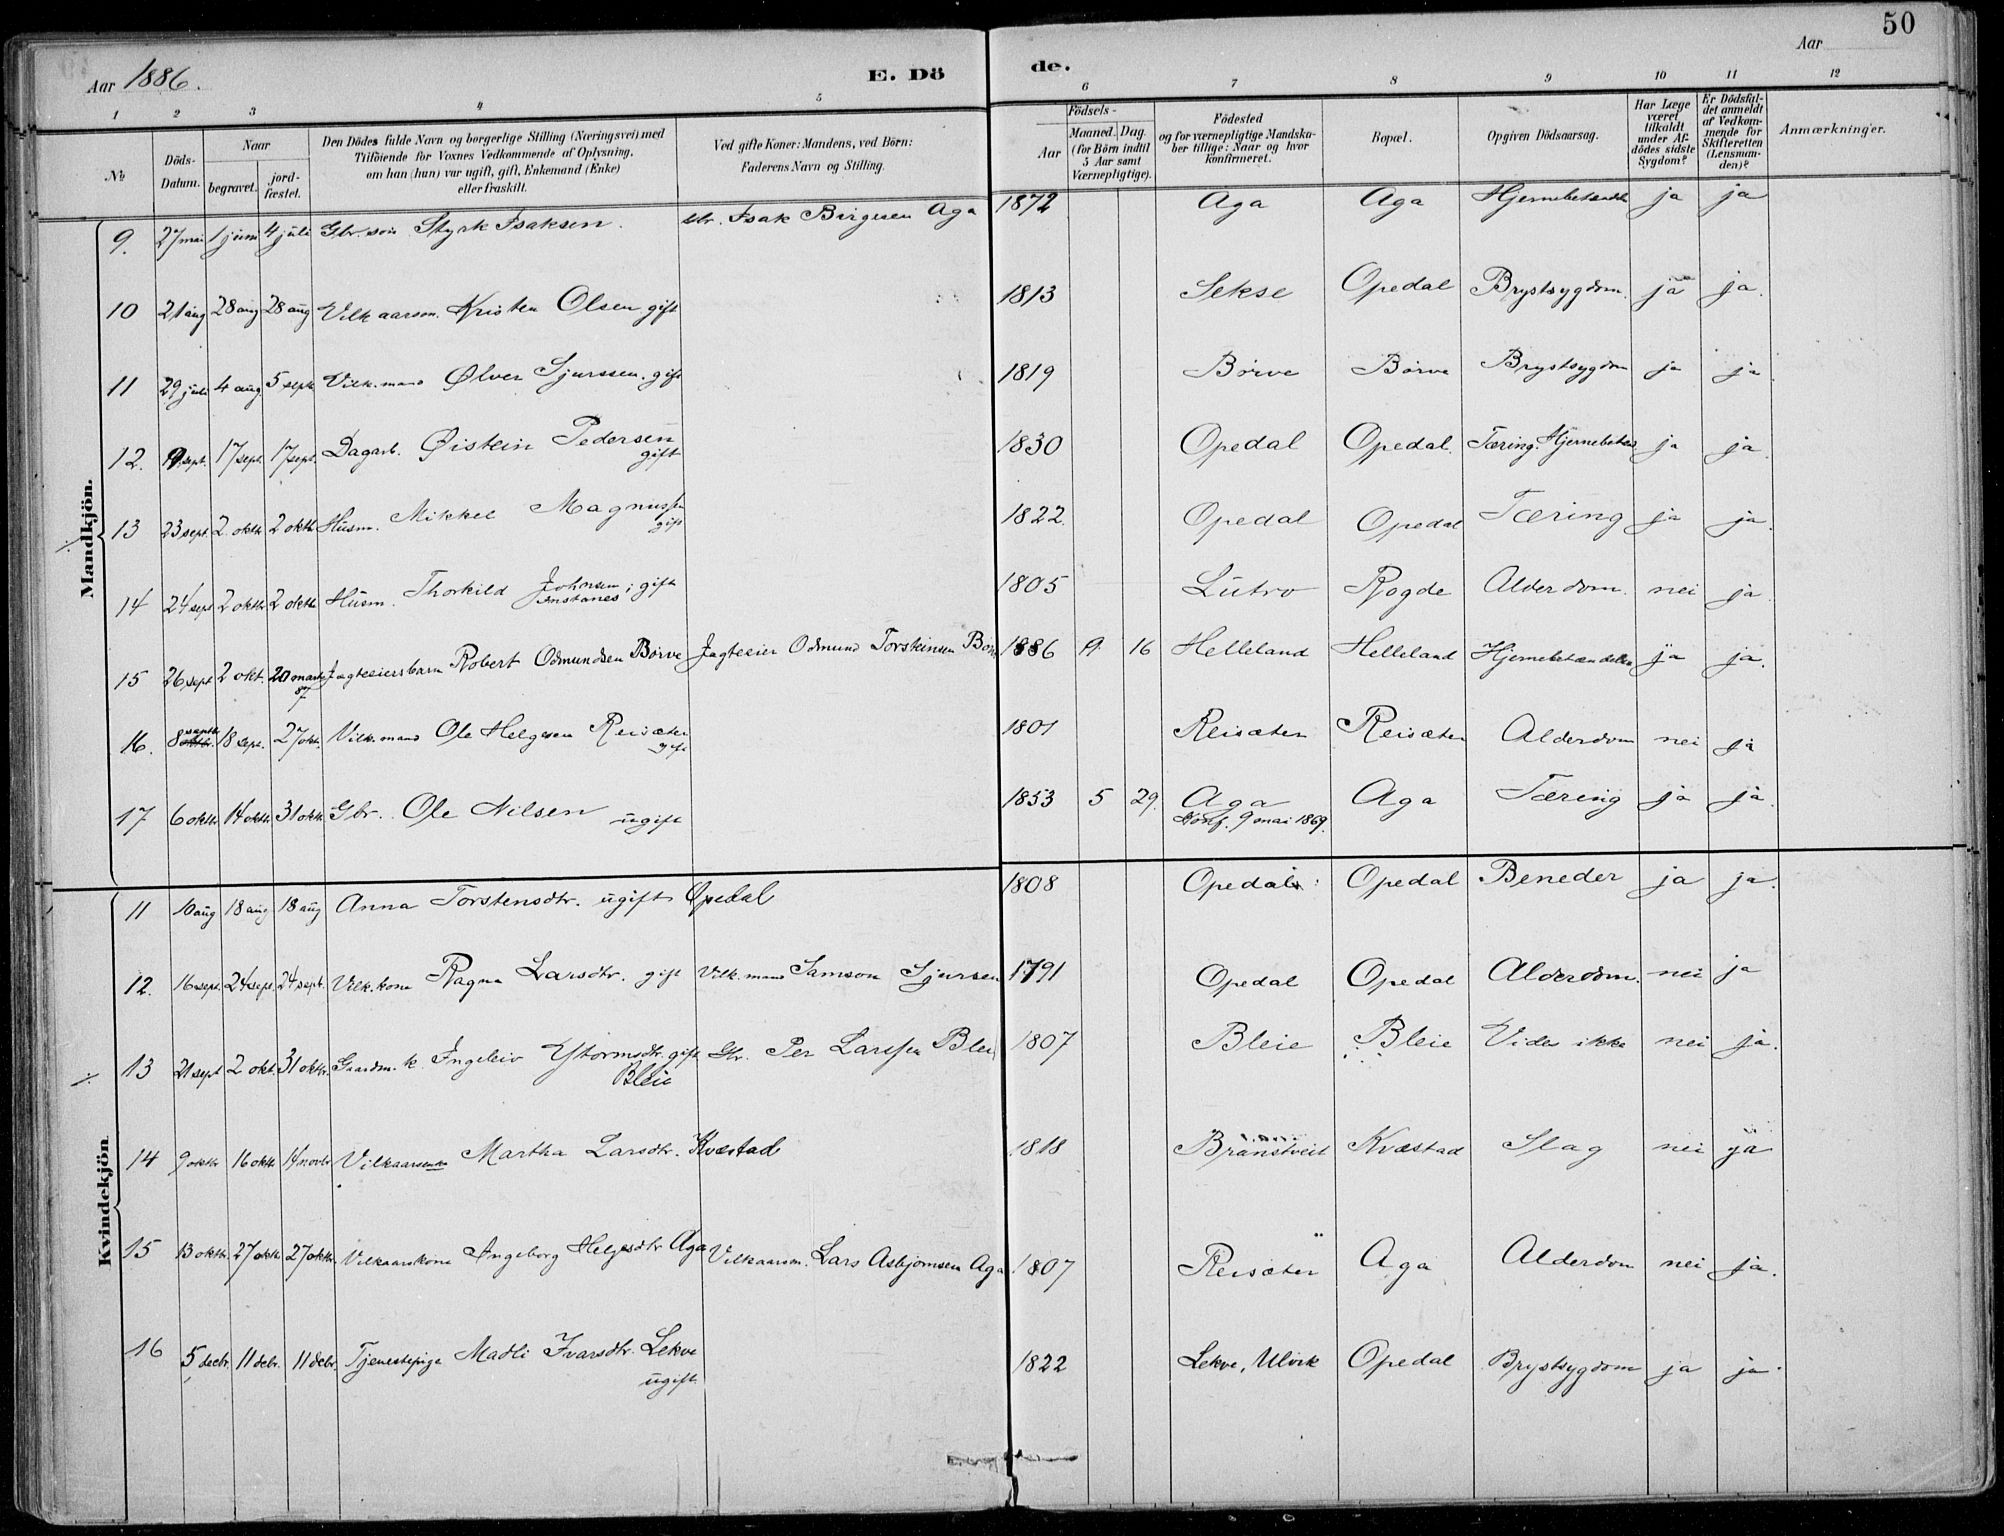 50
Aar 1886.
E. Döde.
Aar
1 2 3 4 5 6 7 8 9 10 11 12
№
Döds-Datum.
Naar
begravet.
jord-fæstet.
Den Dödes fulde Navn og borgerlige Stilling (Næringsvei) med
Tilföiende for Voxnes Vedkommende af Oplysning,
om han (hun) var ugift, gift, Enkemand (Enke)
eller fraskilt.
Ved gifte Koner: Mandens, ved Börn:
Faderens Navn og Stilling.
Födsels-
Aar
Maaned. Dag.
(for Börn indtil
5 Aar samt
Værnepligtige).
Födested
og for værnepligtige Mandska-
ber tillige: Naar og hvor
konfirmeret.
Bopæl.
Opgiven Dödsaarsag.
Har Læge
været
tilkaldt
under Af-
dödes sidste
Sygdom?
Er Dödsfal-
det anmeldt
af Vedkom-
mende for
Skifteretten
(Lensman-
den)?
Anmærkninger.
Mandkjön.
9. 27 mai 1 juni 4 juli Gbr. sön Styrk Isaksen. Gbr. Isak Birgesen Aga 1872 Aga Aga Hjernebetændls ja ja
10 21 aug 28 aug 28 aug Vilkaarsm. Kristen Olsen gift 1813 Sekse Opedal Brystsygdom. ja ja.
11 29 juli 4 aug. 5 sept. Vilk.mand Ølver Sjurssen. gift 1819 Börve Börve Brystsygdom ja ja.
12. 9 sept. 17 sept. 17 sept. Dagarb. Øistein Pedersen gift 1830 Opedal Opedal. Tæring. Hjernebetænd ja ja.
13 23 sept. 2. oktb. 2 oktb. Husm. Mikkel Magnussen gift 1822. Opedal Opedal Tæring ja ja.
14 24 sept 2 oktb. 2 oktb. Husm. Thorkild Johnsen Instanes; gift 1805 Lutro Rogde Alderdom. nei ja.
15 26 sept 2 okt. 20 marts 87 Jagteeiersbarn Robert Odmundsen Börve Jagteeier Odmund Torsteinsen Börve 1886 9. 16 Helleland Helleland Hjernebetændelse ja ja.
16. 8 septb. 18 sept. 27 okt. Vilk.mand Ole Helgesen Reisæter gift 1801 Reisæter Reisæter Alderdom nei ja
17 6 oktb. 14 oktb. 31 oktb. Gbr. Ole Nilsen ugift 1853 5 29. Aga Konf. 9 mai 1869. Aga Tæring ja ja.
Kvindekjön.
11 10 aug 18 aug 18 aug Anna Torstensdtr. ugift Opedal 1808 Opedal Opedal Beneder ja ja.
12. 16 sept. 24 sept. 24 sept. Vilk.kone Ragna Larsdtr. gift Vilk.mand Samson Sjursen 1791 Opedal Opedal Alderdom. nei ja
13 21 sept 2 okt. 31 oktbr. Gaardm. k. Ingeleiv Ystormsdtr. gift Bleie Gbr. Per Larssen Bleie 1807 Bleie Bleie Vides ikke nei ja.
14 9 oktbr 16 oktb 14 novbr Vilkaarsenke Martha Larsdtr. Kvæstad 1818 Branstveit Kvæstad Slag nei ja
15 13 oktbr. 27 oktb. 27 oktbr. Vilkaarskone Ingeborg Helgesdtr Aga Vilkaarsm. Lars Asbjørnsen Aga 1807 Reisæter Aga Alderdom nei ja.
16 5 decbr. 11 debr. 11 debr. Tjenestepige Madli Ivarsdtr. Lekve ugift 1822 Lekve, Ulvik Opedal Brystsygdom ja ja.